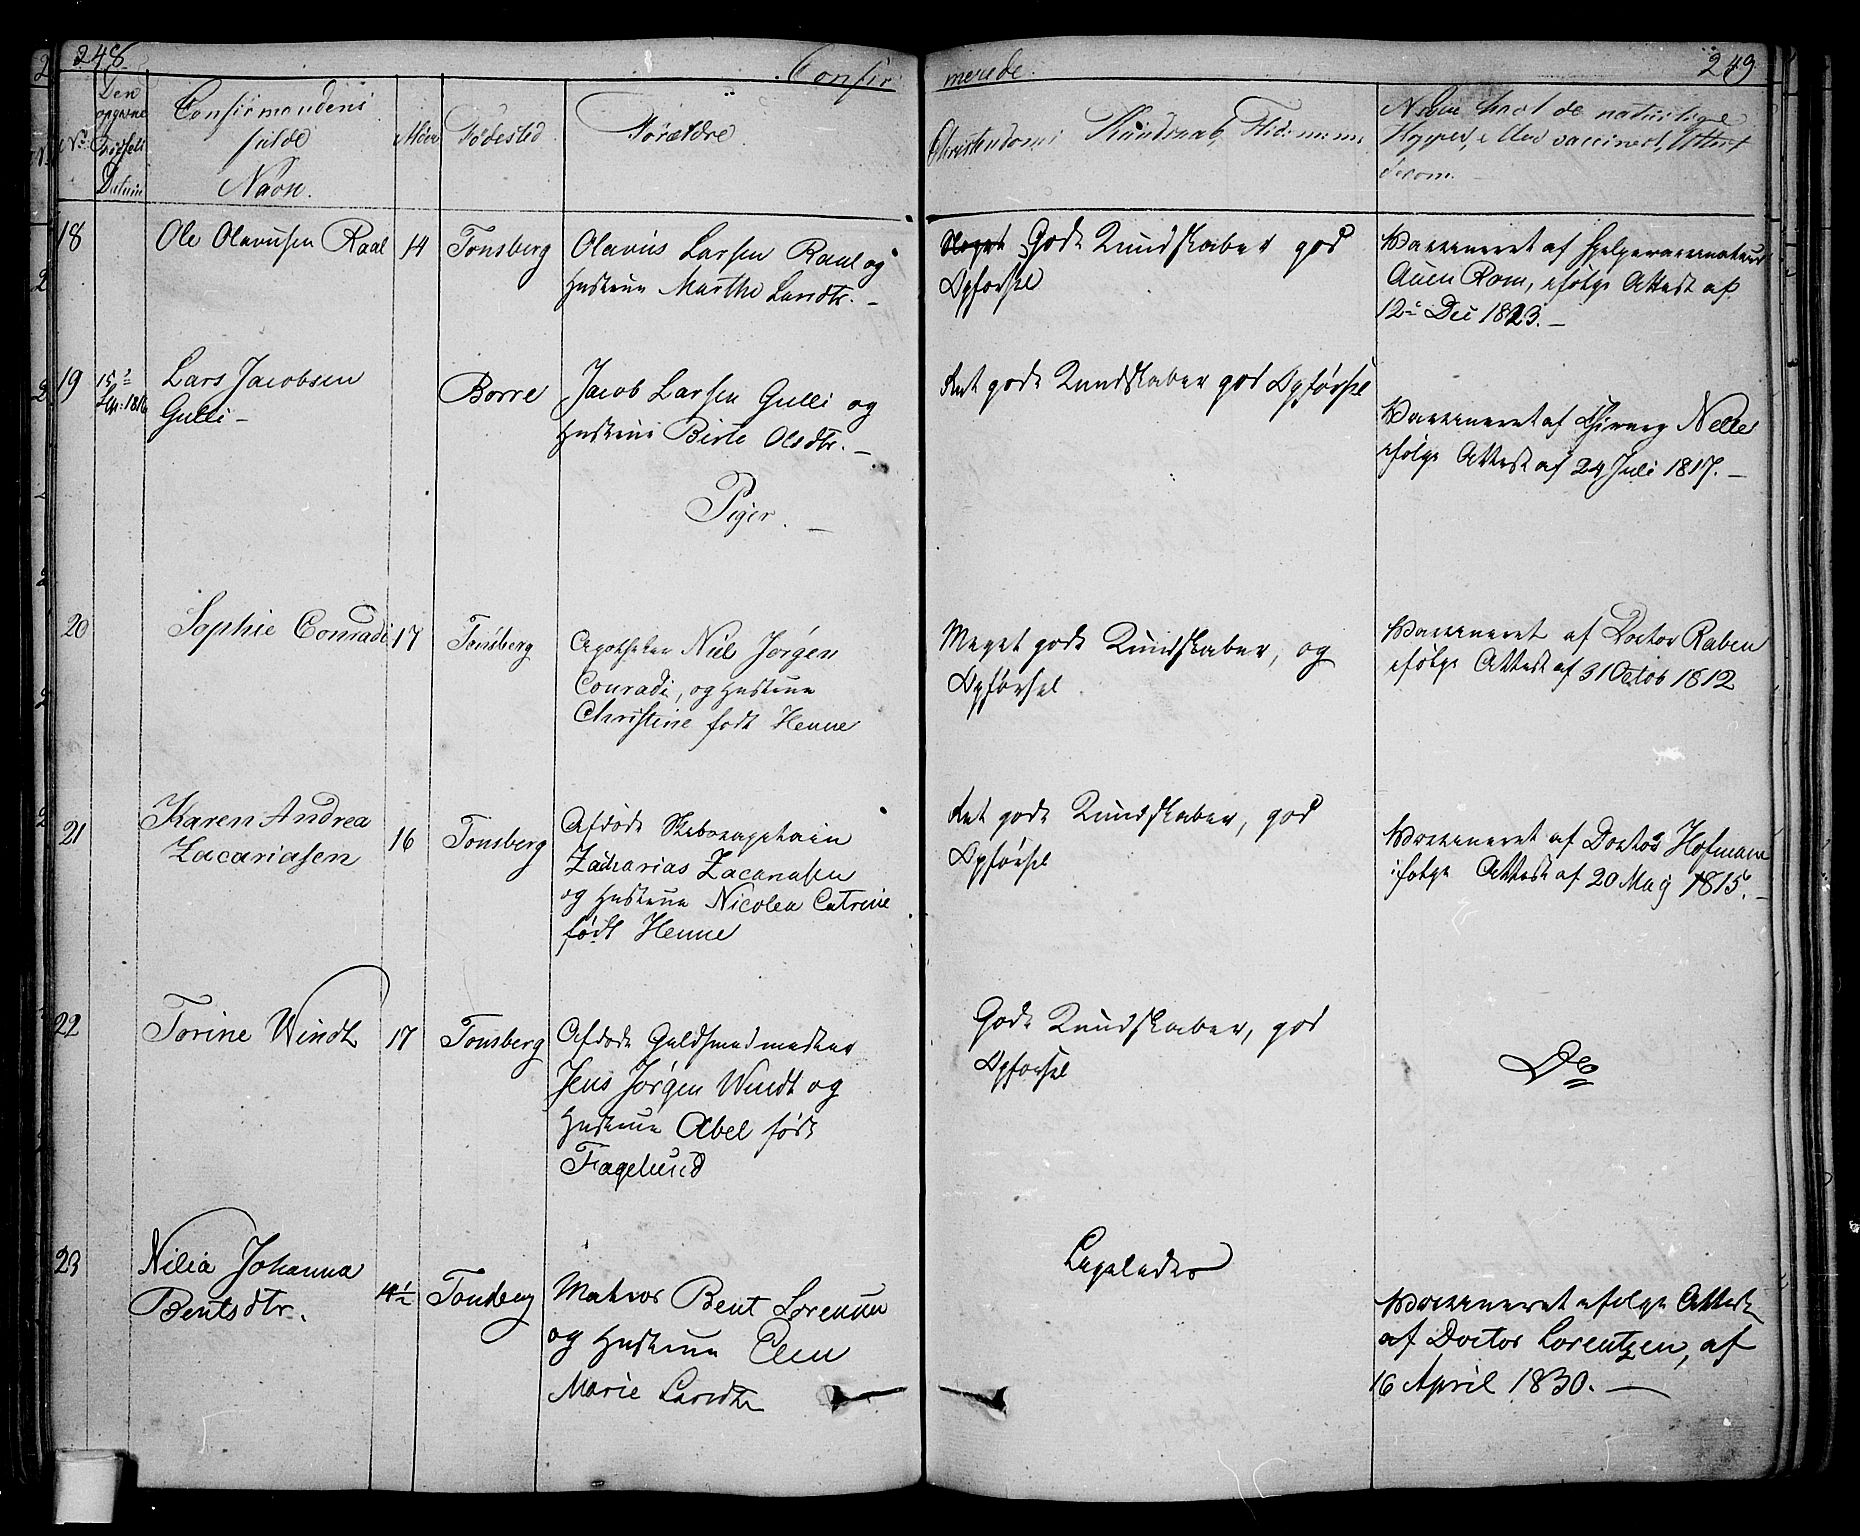 248
Confir
merede
249
No
Den opgivne Fødsels Datum
Confirmandens
fulde
Navn.
Alder
Fødested
Forældre
Christendoms Kundskab,
Naar havt de naturlige
Kopper, eller vaccineret, Attest
derom.
18
Ole Olavusen Raal
14
Tonsberg
Olavus Larsen Raal og
Hustrue Marthe Larsdtr. —
Meget Gode Kundskaber god
Opførsel
Vaccineret af Hjelpevaccinateur
Auen Rom, ifølge Attest af
12te Dec 1823. —
19
15de
Sep: 1816
Lars Jacobsen
Gulli —
Borre
Jacob Larsen Gulli og
Hustrue Birte Olsdtr. —
Ret gode Kundskaber god Opførsel
Vaccineret af Chirurg Nelle
ifølge Attest af 24 Juli 1817. —
Piger. —
20
Sophie Conradi
17
Tønsberg
Apotheker Niels Jørgen
Conradi, og Hustrue
Christine født Henne
Meget gode Kundskaber, og
Opførsel
Vaccineret af Doctor Raben
ifølge Attest af 31 Octob 1812
21
Karen Andrea
Zacariasen
16
Tonsberg
Afdøde Skibscapitain
Zacharias Zacariasen
og Hustrue Nicolea Catrine
født Henne
Ret gode Kundskaber, god
Opførsel
Vaccineret af Doctor Hofmann
ifølge Attest af 20 May 1815. —
22
Torine Windt
17
Tonsberg
Afdøde Guldsmedmester
Jens Jørgen Windt og
Hustrue Abel født
Fagelund
Gode Kundskaber, god
Opførsel
Do
23
Nilia Johanna
Bentsdtr.
14½
Tonsberg
Matros Bent Lorensen
og Hustrue Elen
Marie Larsdtr
Ligeledes
Vaccineret ifølge Attest
af Doctor Lorentzen, af
16 April 1830. —